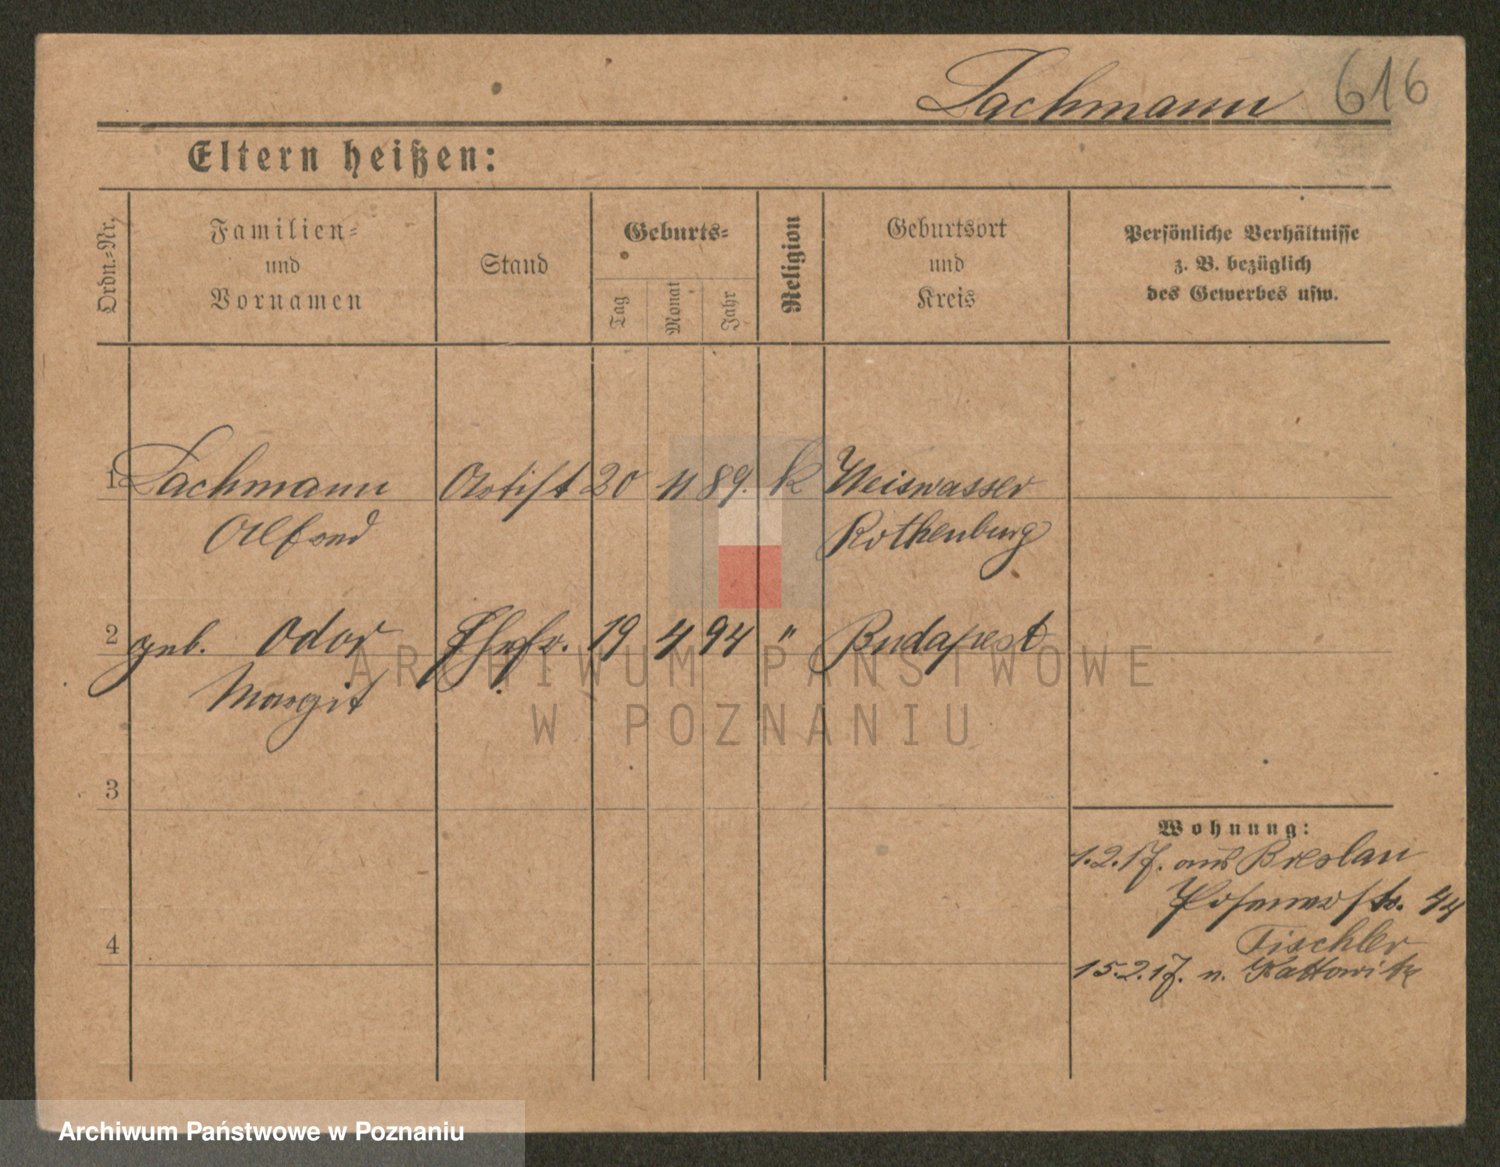 Lachmann 616
Eltern heißen:
Ordn.-Nr.
Familien-
und
Vornamen
Stand
Geburts-
Tag
Monat
Jahr
Religion
Geburtsort
und
Kreis
Persönliche Verhältnisse
z. B. bezüglich
des Gewerbes usw.
1 Lachmann Artist 20 11 89. k Weiswasser
Alfred Rothenburg
2 geb. Odor Ehefr. 19 4 94 " Budapest
Margit
3
4
Wohnung:
1.2.17. aus Breslau
Posenerstr. 44
Tischler
15.2.17. n. Kattowitz
ARCHIWUM PAŃSTWOWE
W POZNANIU
Archiwum Państwowe w Poznaniu